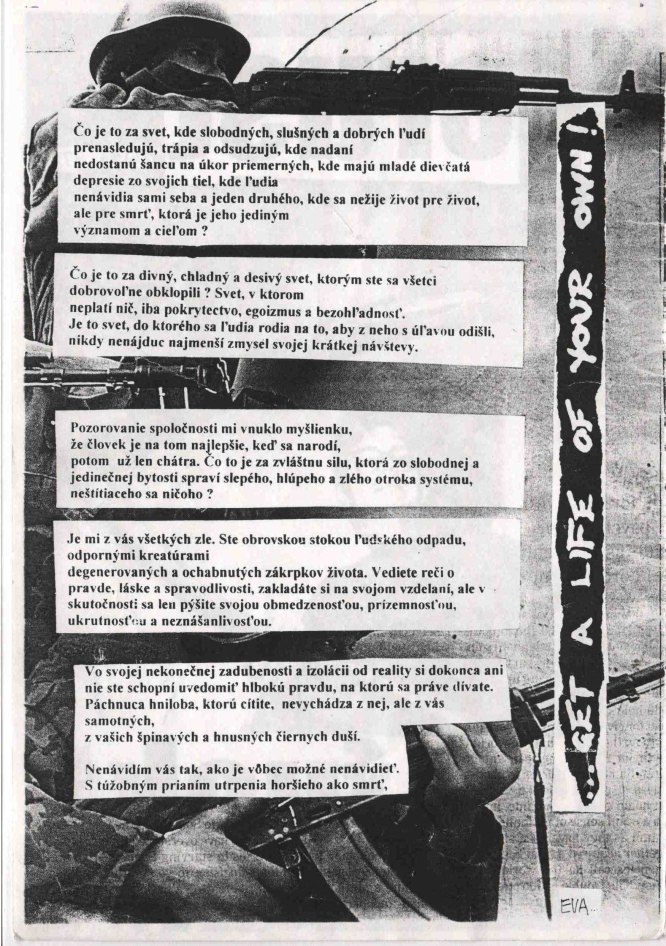 Čo je to za svet, kde slobodných, slušných a dobrých ľudí
prenasledujú, trápia a odsudzujú, kde nadaní
nedostanú šancu na úkor priemerných, kde majú mladé dievčatá
depresie zo svojich tiel, kde ľudia
nenávidia sami seba a jeden druhého, kde sa nežije život pre život,
ale pre smrť, ktorá je jeho jediným
významom a cieľom ?
Čo je to za divný, chladný a desivý svet, ktorým ste sa všetci
dobrovoľne obklopili ? Svet, v ktorom
neplatí nič, iba pokrytectvo, egoizmus a bezohľadnosť.
Je to svet, do ktorého sa ľudia rodia na to, aby z neho s úľavou odišli,
nikdy nenájduc najmenší zmysel svojej krátkej návštevy.
Pozorovanie spoločnosti mi vnuklo myšlienku,
že človek je na tom najlepšie, keď sa narodí,
potom už len chátra. Čo to je za zvláštnu silu, ktorá zo slobodnej a
jedinečnej bytosti spraví slepého, hlúpeho a zlého otroka systému,
neštítiaceho sa ničoho ?
Je mi z vás všetkých zle. Ste obrovskou stokou ľudského odpadu,
odpornými kreatúrami
degenerovaných a ochabnutých zákrpkov života. Vediete reči o
pravde, láske a spravodlivosti, zakladáte si na svojom vzdelaní, ale v
skutočnosti sa len pýšite svojou obmedzenosťou, prízemnosťou,
ukrutnosťou a neznášanlivosťou.
Vo svojej nekonečnej zadubenosti a izolácii od reality si dokonca ani
nie ste schopní uvedomiť hlbokú pravdu, na ktorú sa práve dívate.
Páchnuca hniloba, ktorú cítite, nevychádza z nej, ale z vás
samotných,
z vašich špinavých a hnusných čiernych duší.
Nenávidím vás tak, ako je vôbec možné nenávidieť.
S túžobným prianím utrpenia horšieho ako smrť,
...GET A LIFE OF YOUR OWN!
EVA..